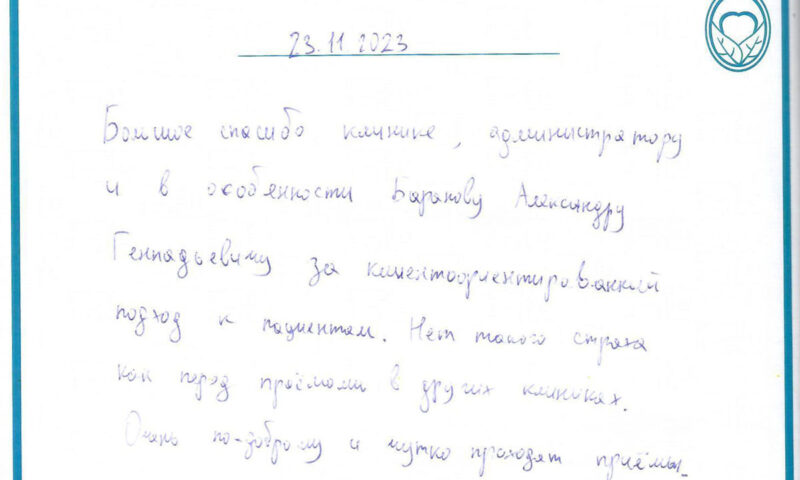 23.11 2023
Большое спасибо клинике, администратору
и в особенности Баранову Александру
Геннадьевичу за клиентоориентированный
подход к пациентам. Нет такого страха
как перед приёмами в других клиниках.
Очень по-доброму и чутко проходят приёмы.